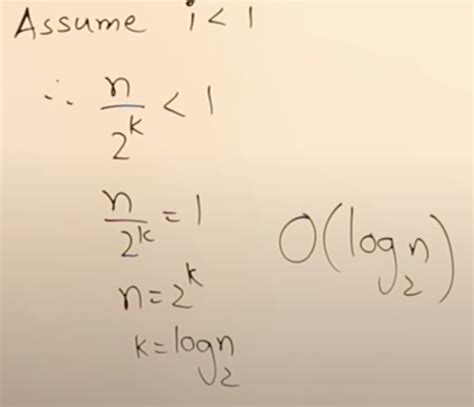 Assume i < 1
∴ n/2^k < 1
n/2^k = 1
n = 2^k
k = log₂n
O(log₂n)